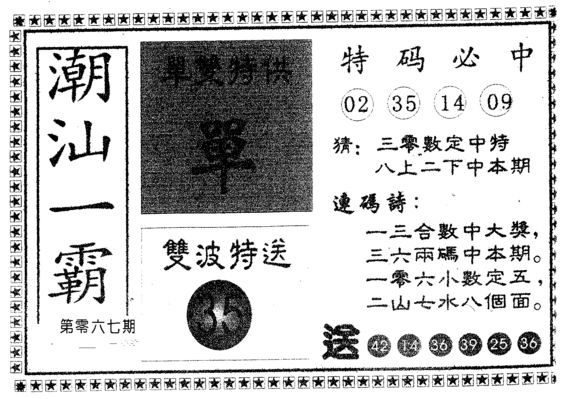 潮汕一霸
第零六七期
單雙特供
單
雙波特送
35
特码必中
02 35 14 09
猜：三零數定中特
八上二下中本期
連碼詩：
一三合數中大獎，
三六兩碼中本期。
一零六小數定五，
二山七水八個面。
送 42 14 36 39 25 36